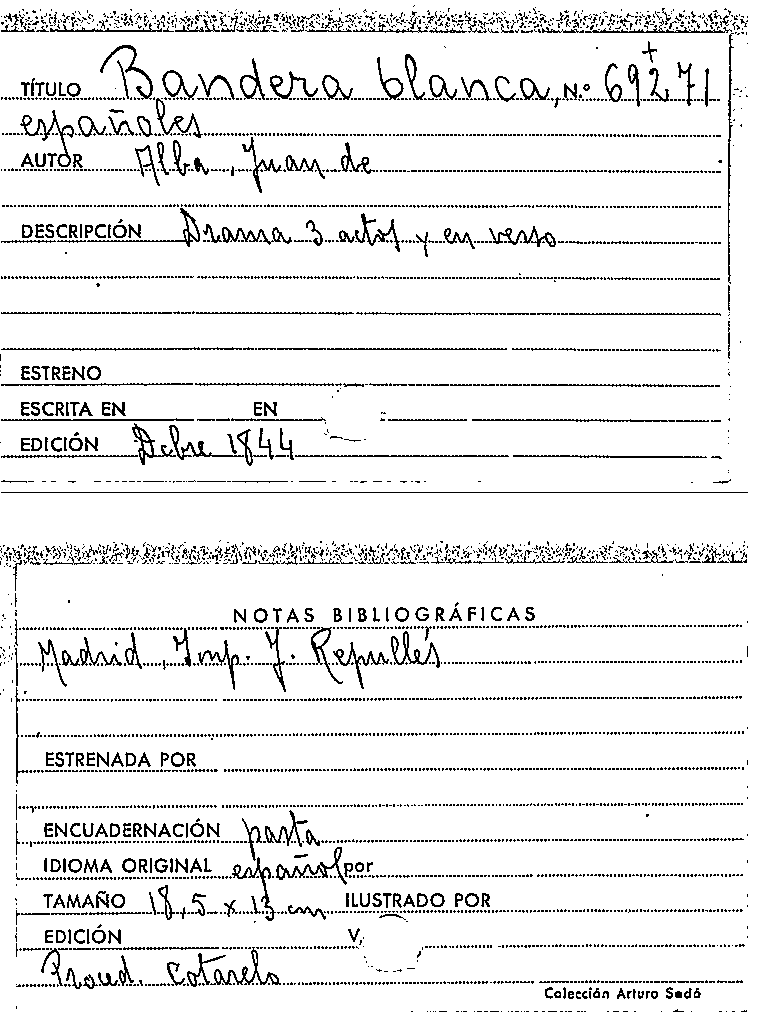 TÍTULO Bandera blanca, N.º 69271
españoles
AUTOR Alba, Juan de
DESCRIPCIÓN Drama 3 actos y en verso
ESTRENO
ESCRITA EN EN
EDICIÓN Dcbre 1844
NOTAS BIBLIOGRÁFICAS
Madrid, Imp. J. Repullés
ESTRENADA POR
ENCUADERNACIÓN pasta
IDIOMA ORIGINAL español por
TAMAÑO 18,5 x 13 cm ILUSTRADO POR
EDICIÓN V.
Proced. Cotarelo
Colección Arturo Sedó